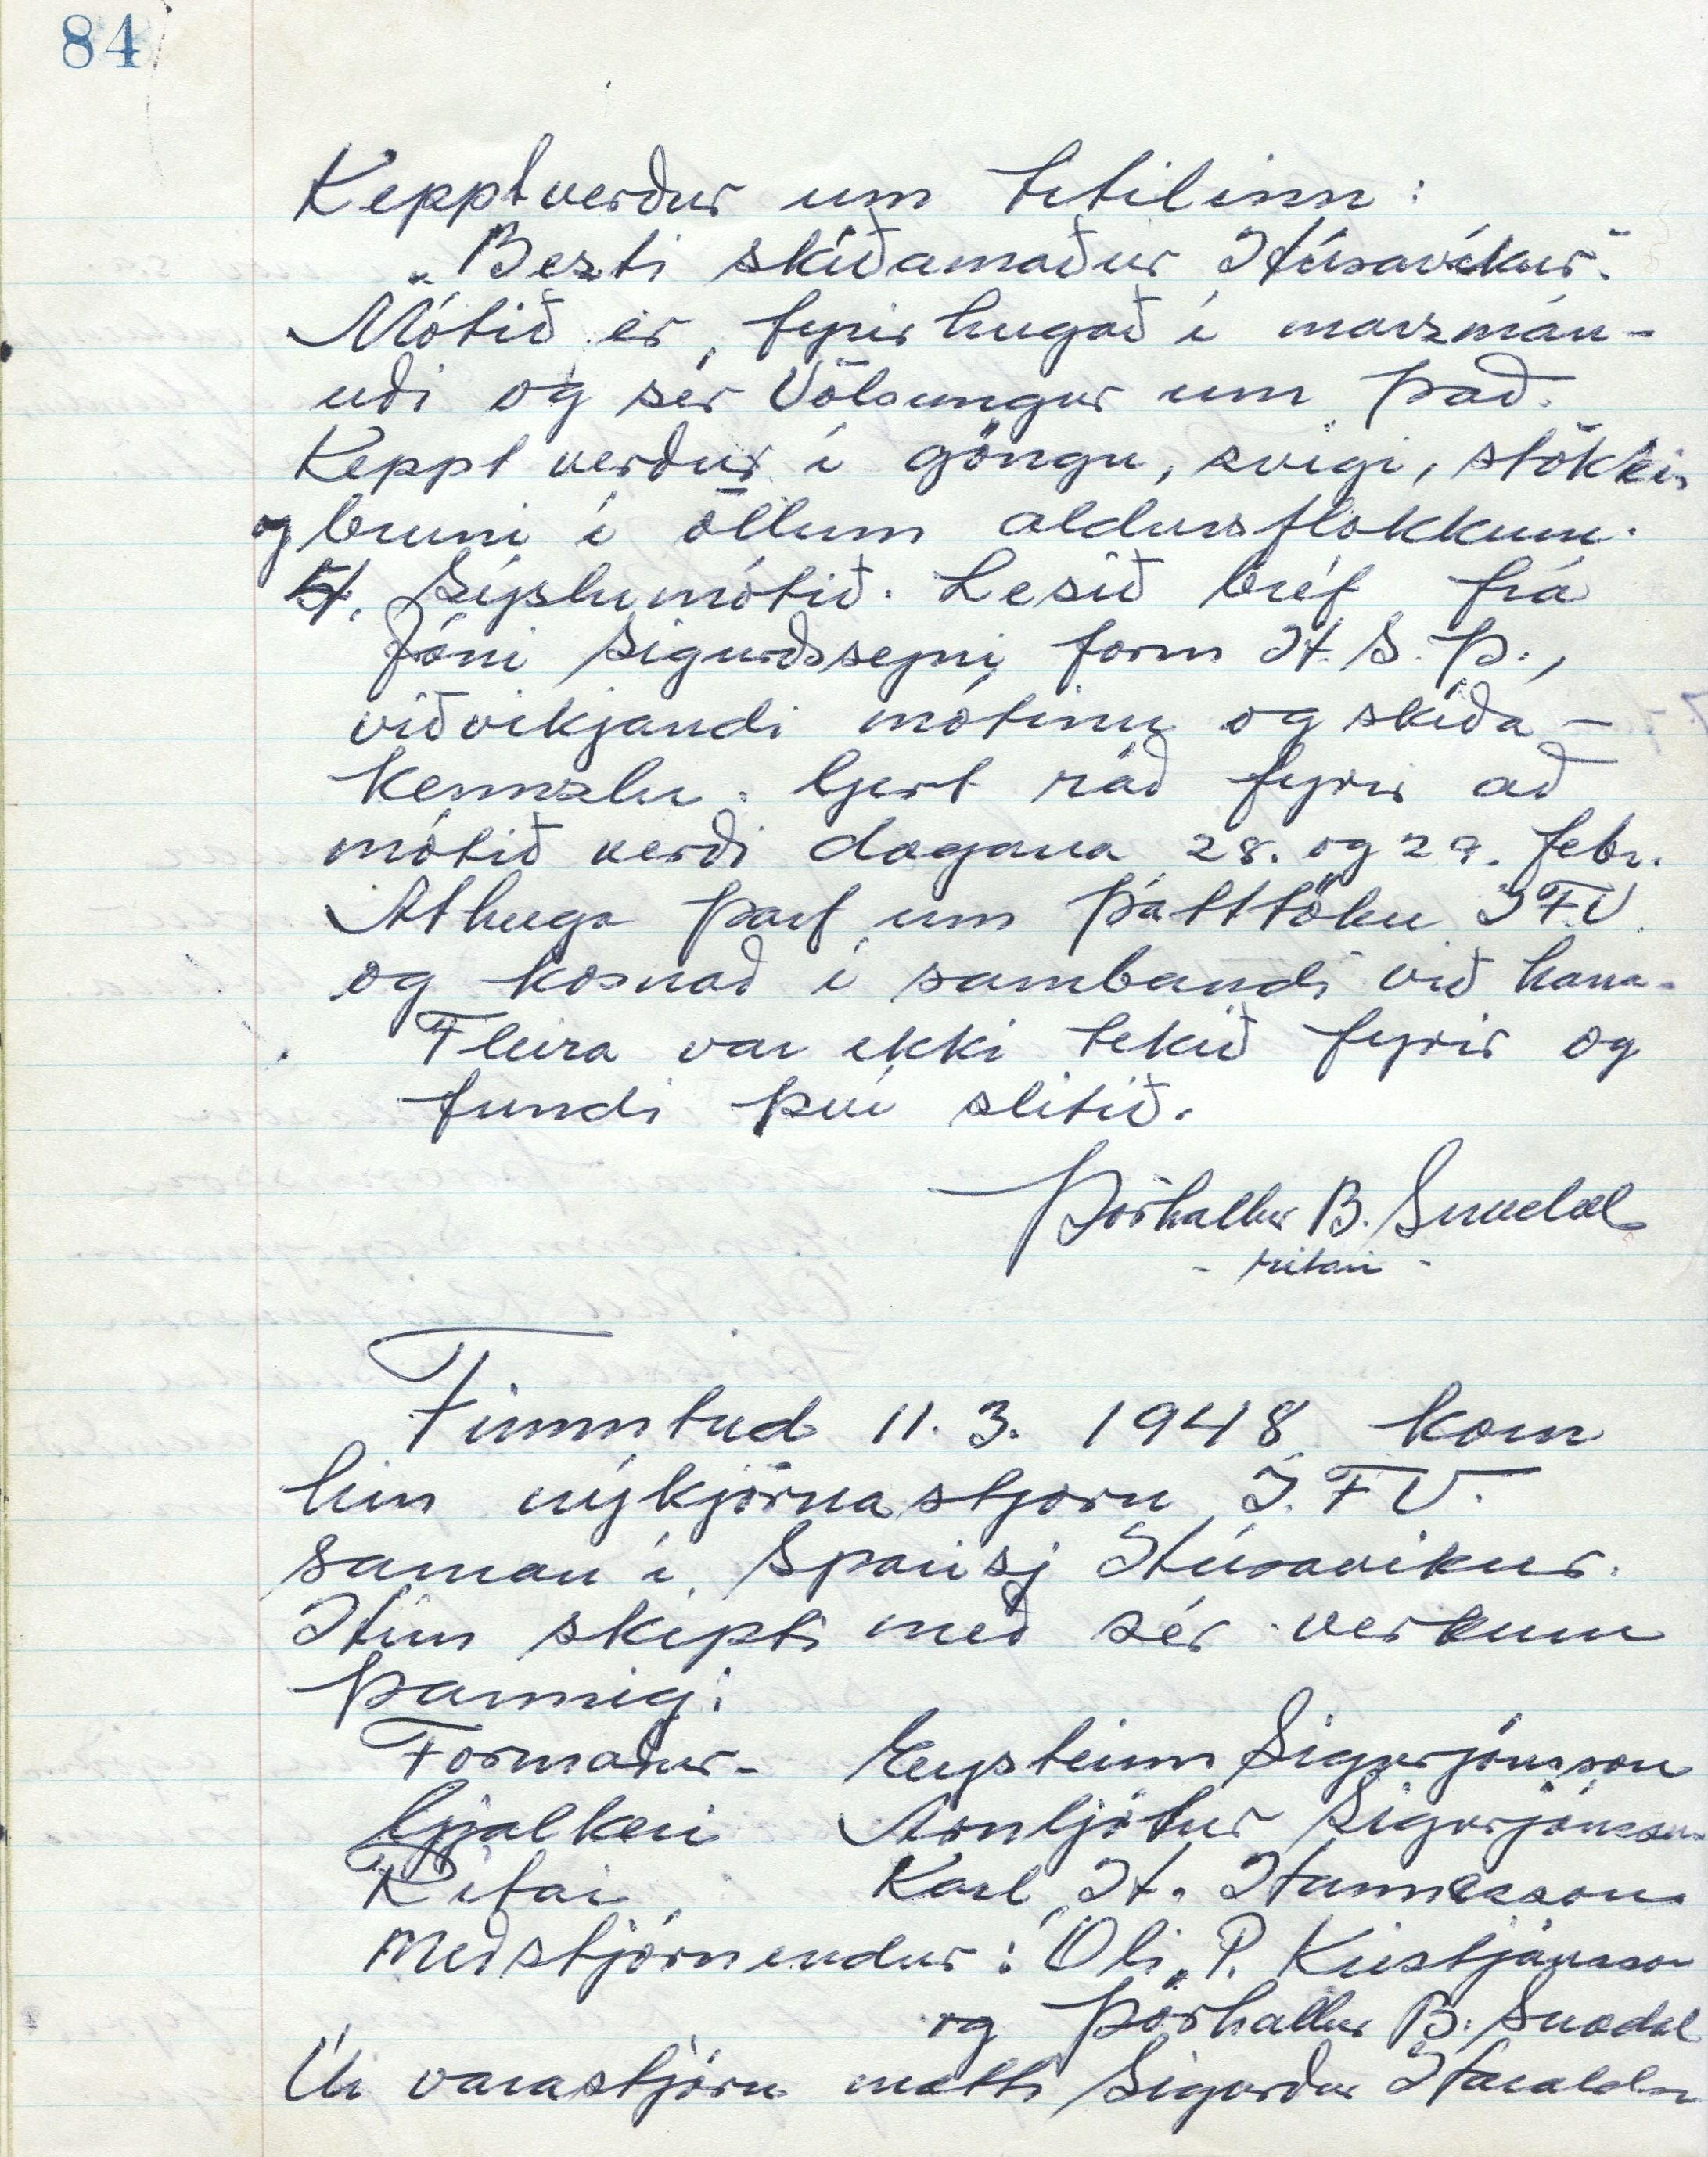 84
Keppt verður um titilinn:
„Bezti skíðamaður Húsavíkur."
Mótið er fyrirhugað í marzmán-
uði og sér Völsungur um það.
Keppt verður í göngu, svigi, stökki,
og bruni í öllum aldursflokkum.
4. Sýslumótið. Lesið bréf frá
Jóni Sigurðssyni form H.S.Þ.,
viðvikjandi mótinu og skíða-
kennzlu. Gert ráð fyrir að
mótið verði dagana 28. og 29. febr.
Athuga þarf um þátttöku ÍFV.
og kosnað í sambandi við hana.
Fleira var ekki tekið fyrir og
fundi því slitið.
Þórhallur B. Snædal
- ritari -
Fimmtud 11.3. 1948 kom
hin nýkjörna stjórn Í.F.V.
saman í Sparisj Húsavíkur.
Hún skipti með sér verkum
þannig:
Formaður- Eysteinn Sigurjónsson
Gjalkeri Arnljótur Sigurjónsson
Ritari Karl H. Hannesson
Meðstjórnendur: Óli P. Kristjánsson
og Þórhallur B. Snædal
Úr varastjórn mætti Sigurður Haraldsson